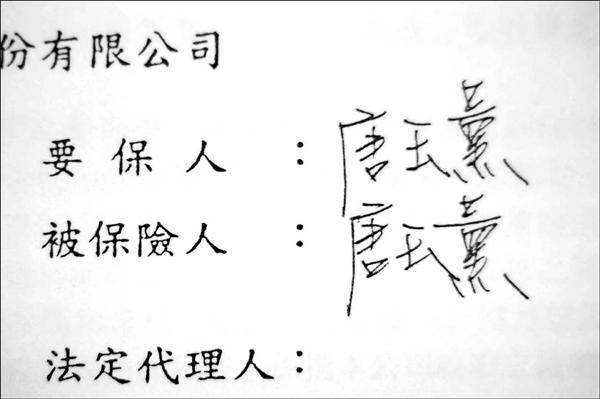 份有限公司
要保人：唐玉薰
被保險人：唐玉薰
法定代理人：